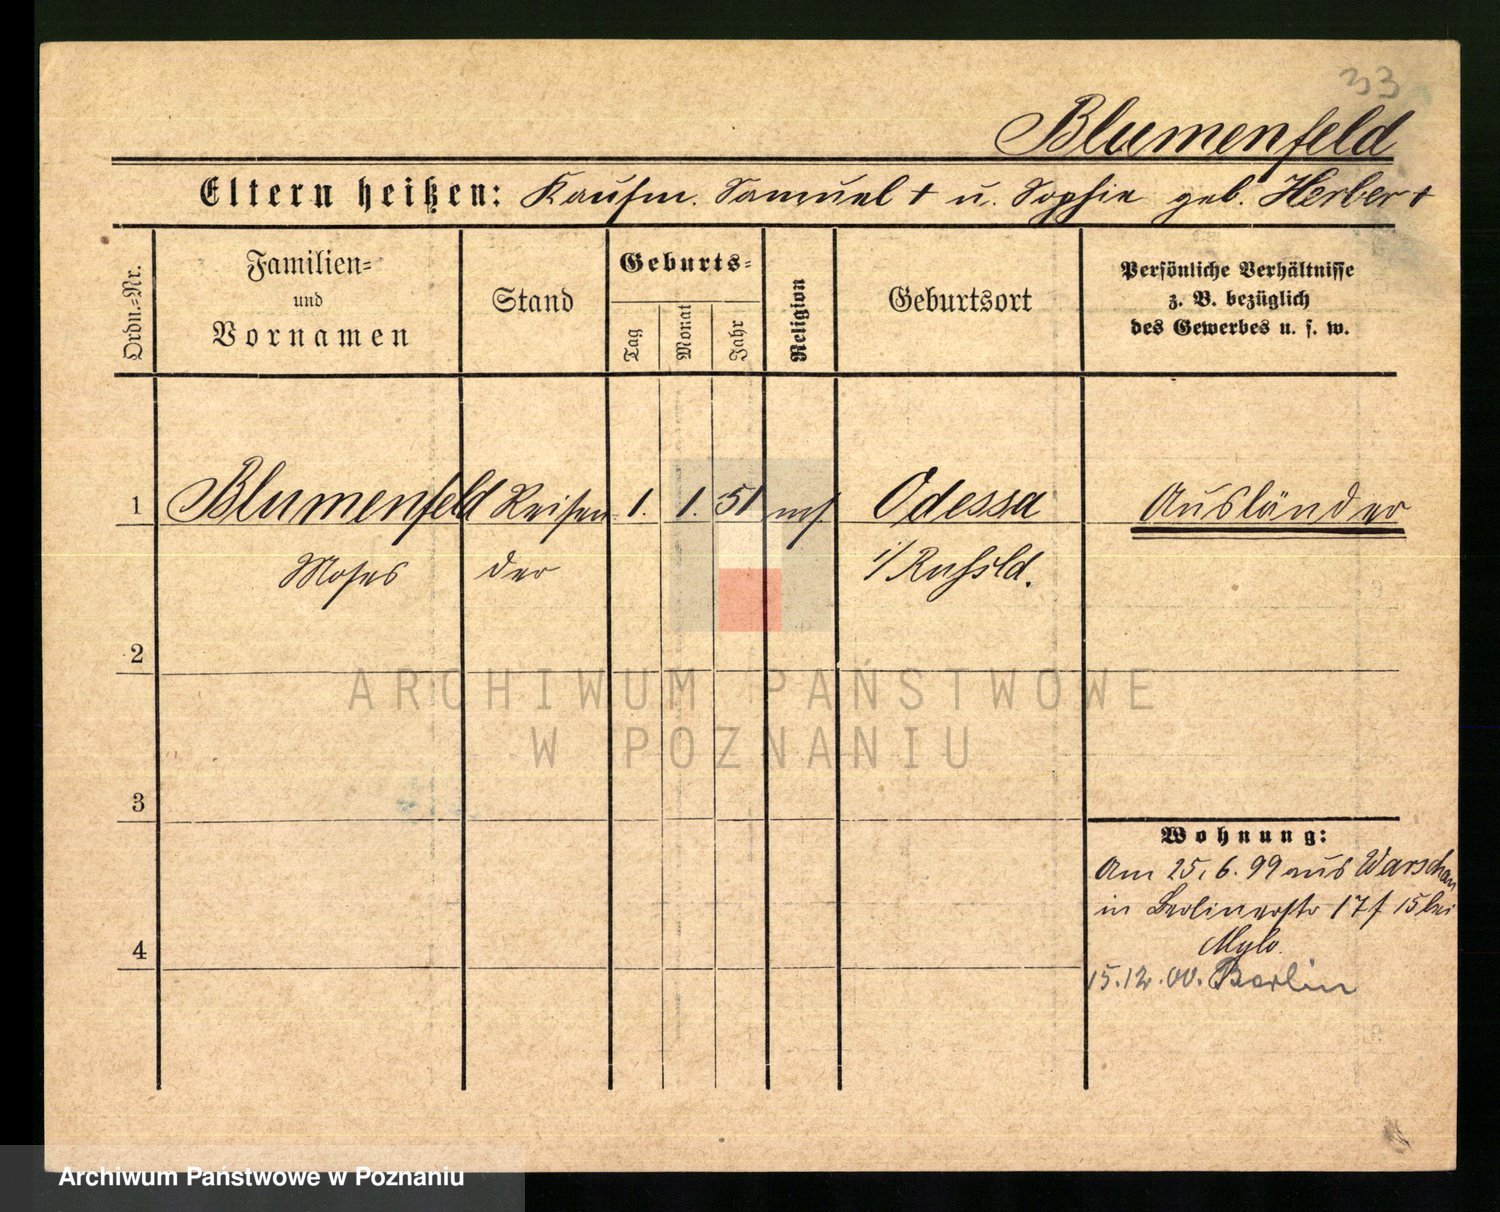 33
Blumenfeld
Eltern heißen: Kaufm. Samuel + u. Sophie geb. Herber +
Ordn.=Nr.
Familien=
und
Vornamen
Stand
Geburts=
Tag
Monat
Jahr
Religion
Geburtsort
Persönliche Verhältnisse
z. B. bezüglich
des Gewerbes u. s. w.
1 Blumenfeld Reisen= 1. 1. 51 mos. Odessa Ausländer
Moses der i/Rußld.
2
ARCHIWUM PAŃSTWOWE
W POZNANIU
3
Wohnung:
Am 25.6.99 aus Warschau
in Berlinerstr 17 f 15 bei
Mylo.
4
15.12.00. Berlin
Archiwum Państwowe w Poznaniu